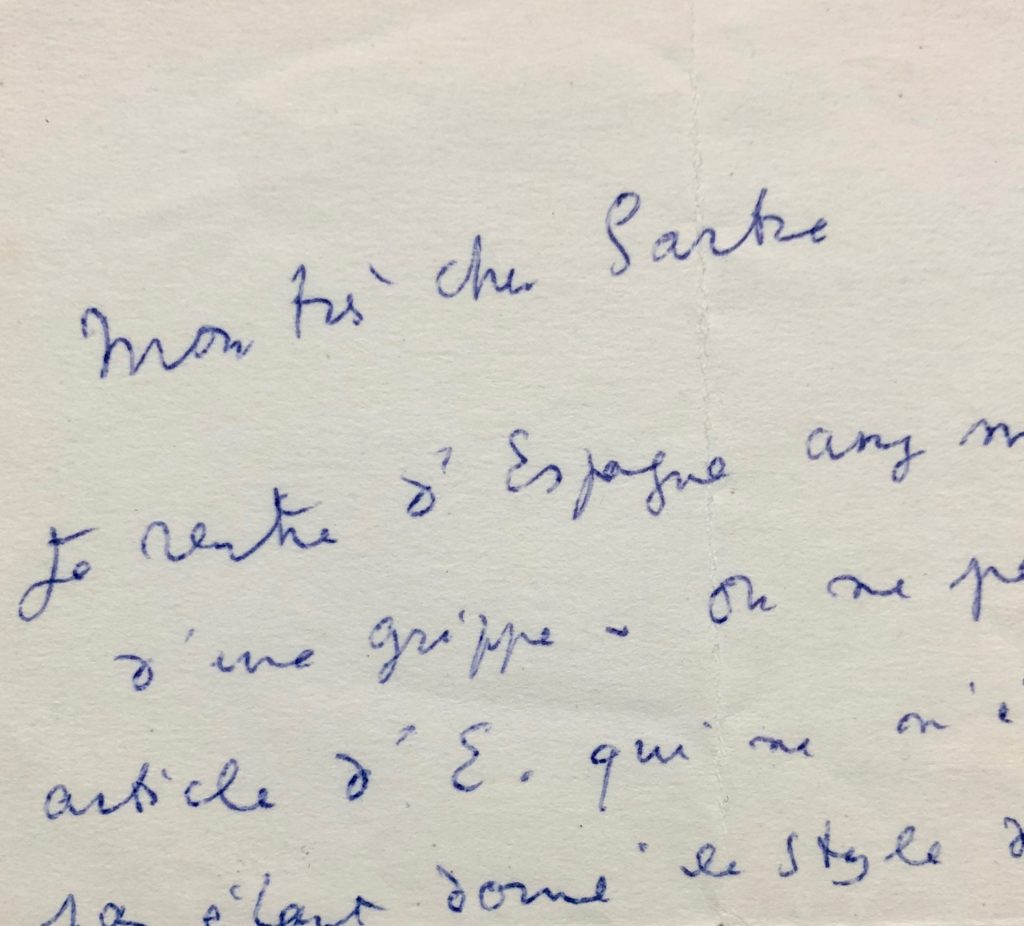 Mon très cher Sartre
Je rentre d'Espagne
d'une grippe - On me
article d'E. qui ne m'
étant donné le style